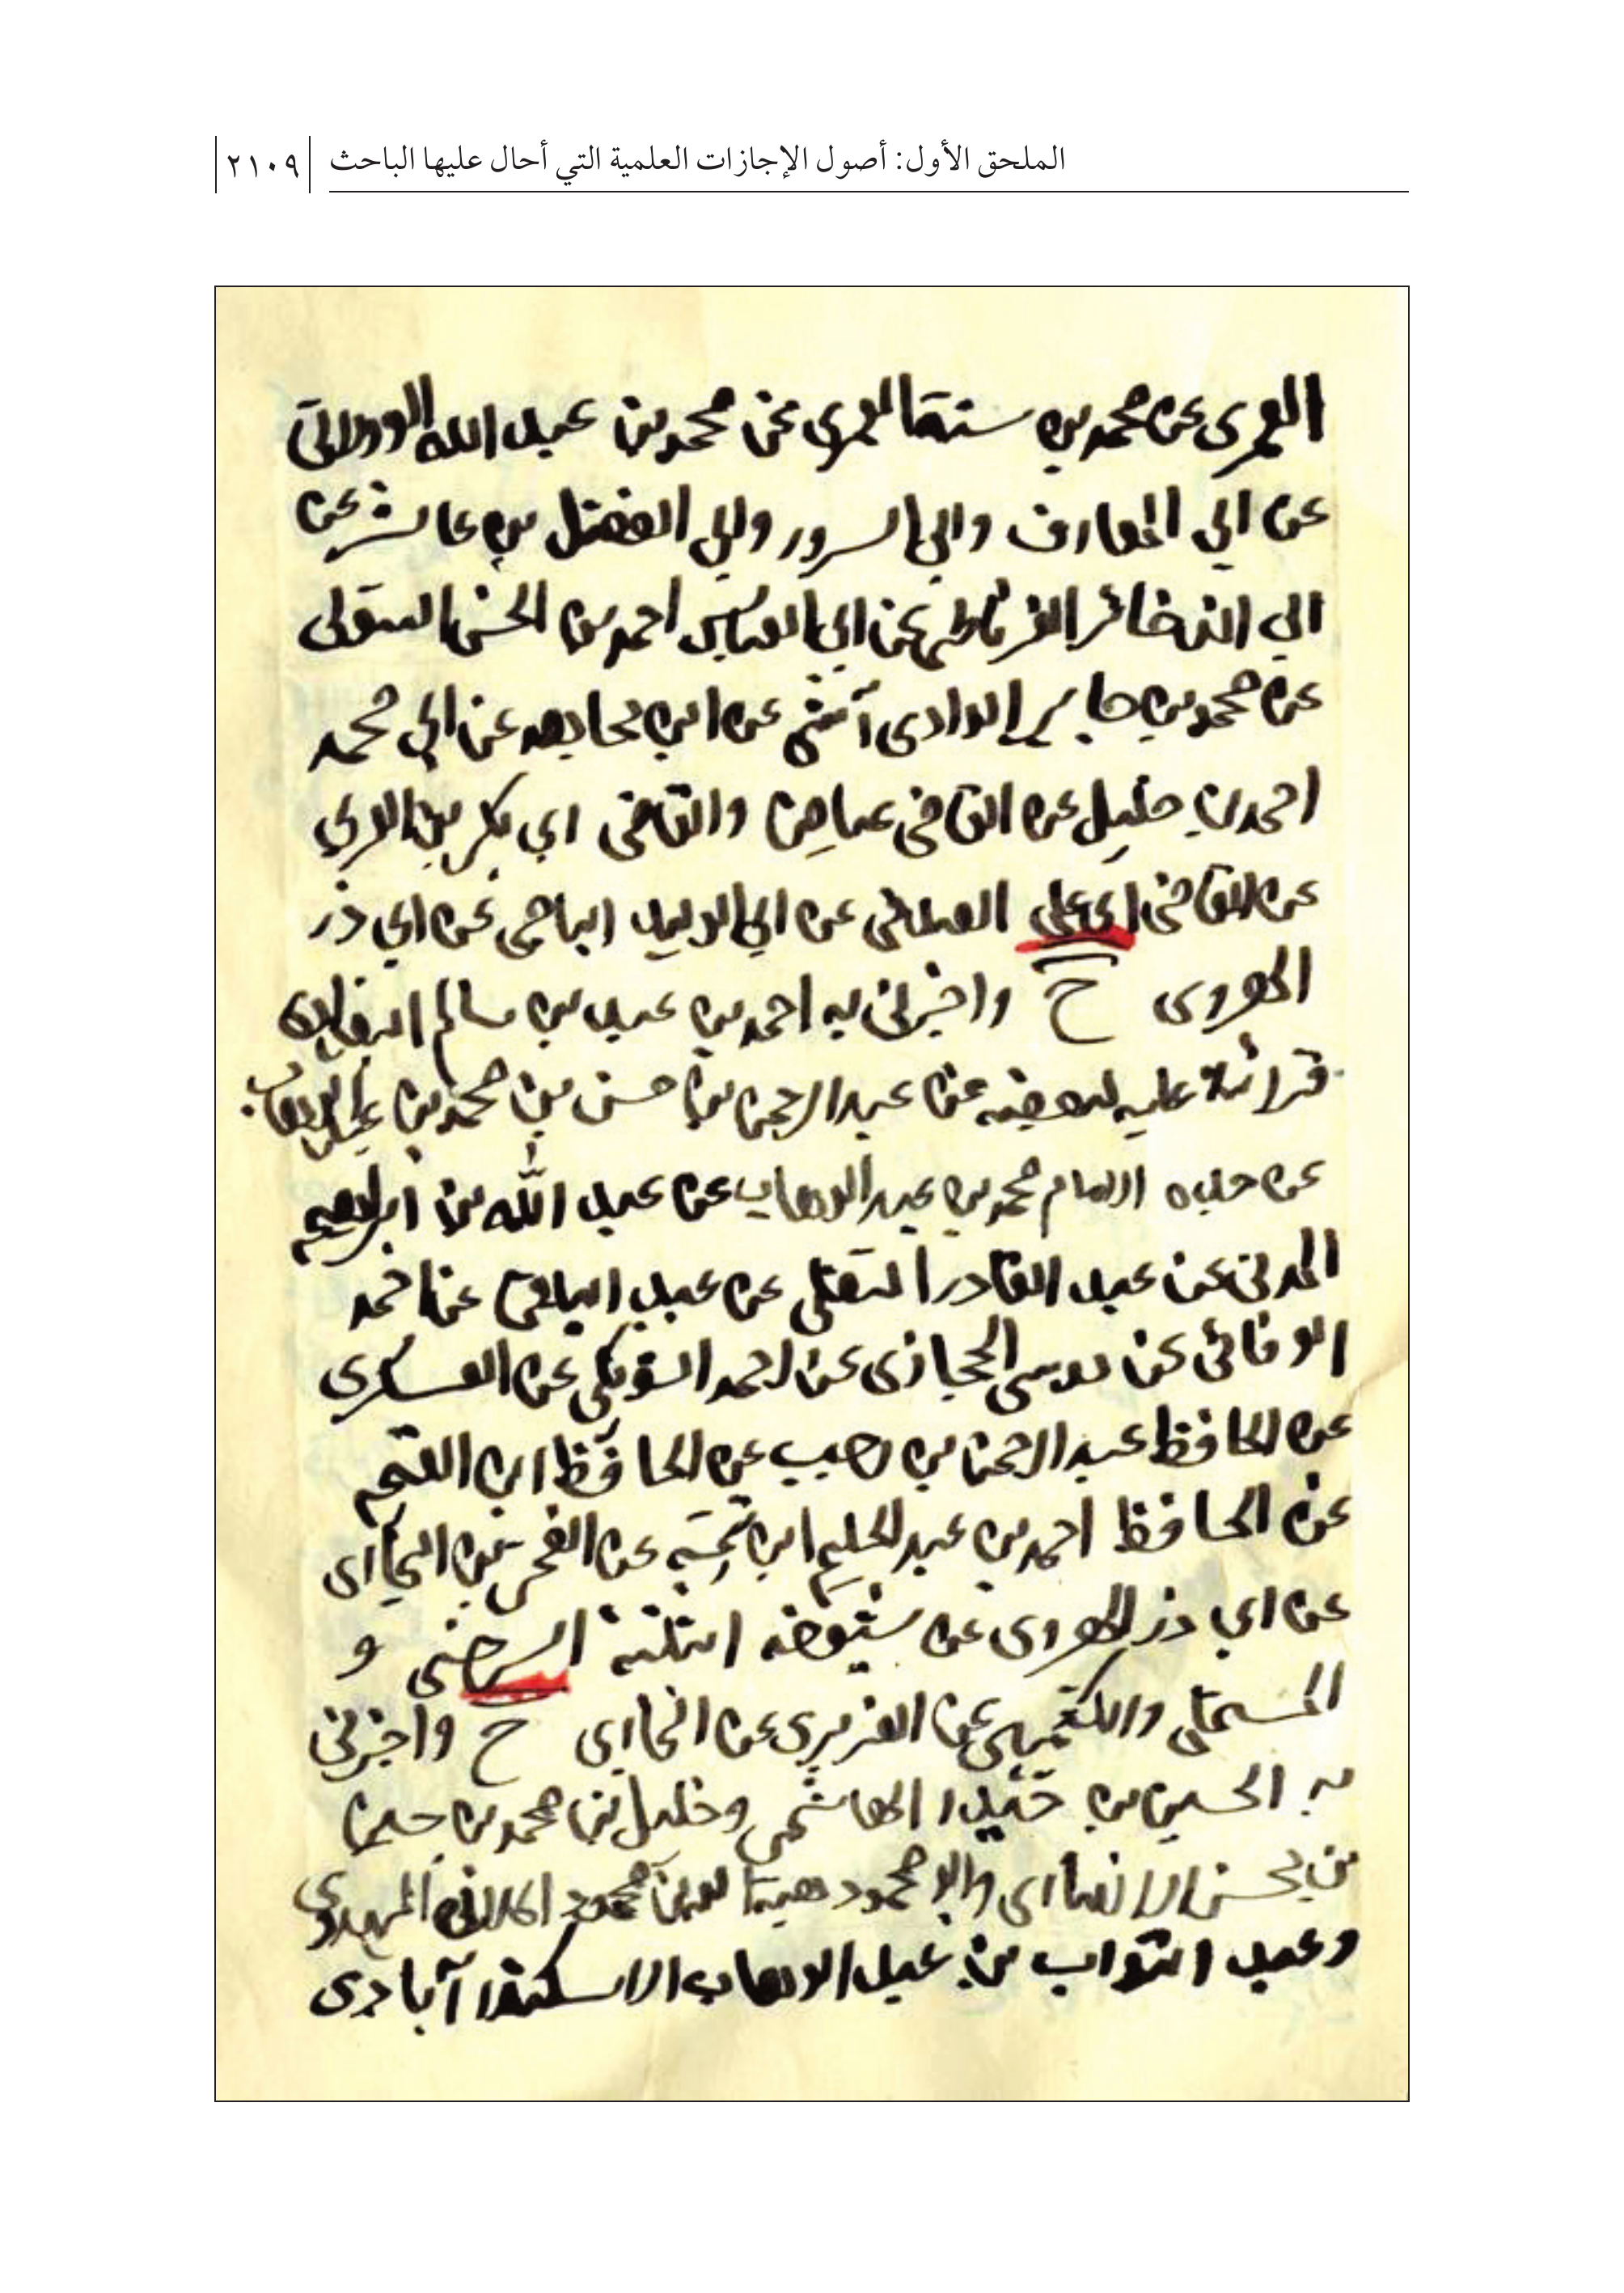 الملحق الأول: أصول الإجازات العلمية التي أحال عليها الباحث ٢١٠٩
العمرى عن محمد بن سنة العمرى عن محمد بن عبد الله الوولاتى
عن ابي المعارف وابي السرور وابي الفضل بن عاشر عن
ابي الذخائر الغرناطي عن ابي العباس احمد بن الحسن
عن محمد بن جابر الوادى آشي عن ابن عن ابي محمد
احمد بن خليل عن القاضى عياض والقاضى ابي بكر بن العربي
عن القاضى ابي علي الصدفى عن ابي الوليد الباجى عن ابي ذر
الهروى ح واخبرنى به احمد بن عبد بن سالم
قرائة عليه لبعضه عن عبد الرحمن بن حسن بن محمد بن عبد الوهاب
عن جده الامام محمد بن عبد الوهاب عن عبد الله بن ابراهيم
المدنى عن عبد القادر التغلبى عن عبد الباقى عن احمد
الوفائى عن موسى الحجازى عن احمد الشويكى عن العسكرى
عن الحافظ عبد الرحمن بن رجب عن الحافظ ابن القيم
عن الحافظ احمد بن عبد الحليم ابن تيمية عن الفخر بن البخارى
عن ابي ذر الهروى عن شيوخه الثلثة السرخسى و
المستملى والكشميهنى عن الفربرى عن البخارى ح واخبرنى
به الحسين بن حيدر الهاشمى وخليل بن محمد بن حسين
بن محسن الانصارى وابو محمود هبة الله بن محمود الملانى المهدوى
وعبد التواب بن عبد الوهاب الاسكندرآبادى